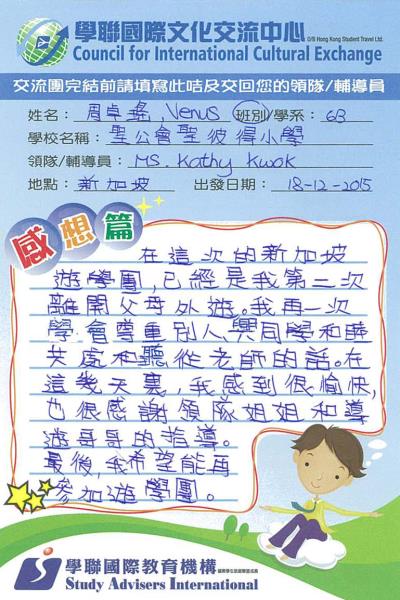 學聯國際文化交流中心 O/B Hong Kong Student Travel Ltd.
Council for International Cultural Exchange
交流團完結前請填寫此咭及交回您的領隊/輔導員
姓名：周卓瑤, Venus 班別/學系：6B
學校名稱：聖公會聖彼得小學
領隊/輔導員：MS. Kathy Kwok
地點：新加坡 出發日期：18-12-2015
感想篇
在這次的新加坡
遊學團,已經是我第二次
離開父母外遊。我再一次
學會尊重別人,與同學和睦
共處和聽從老師的話。在
這幾天裏,我感到很愉快,
也很感謝領隊姐姐和導
遊哥哥的指導。
最後,我希望能再
參加遊學團。
學聯國際教育機構
Study Advisers International